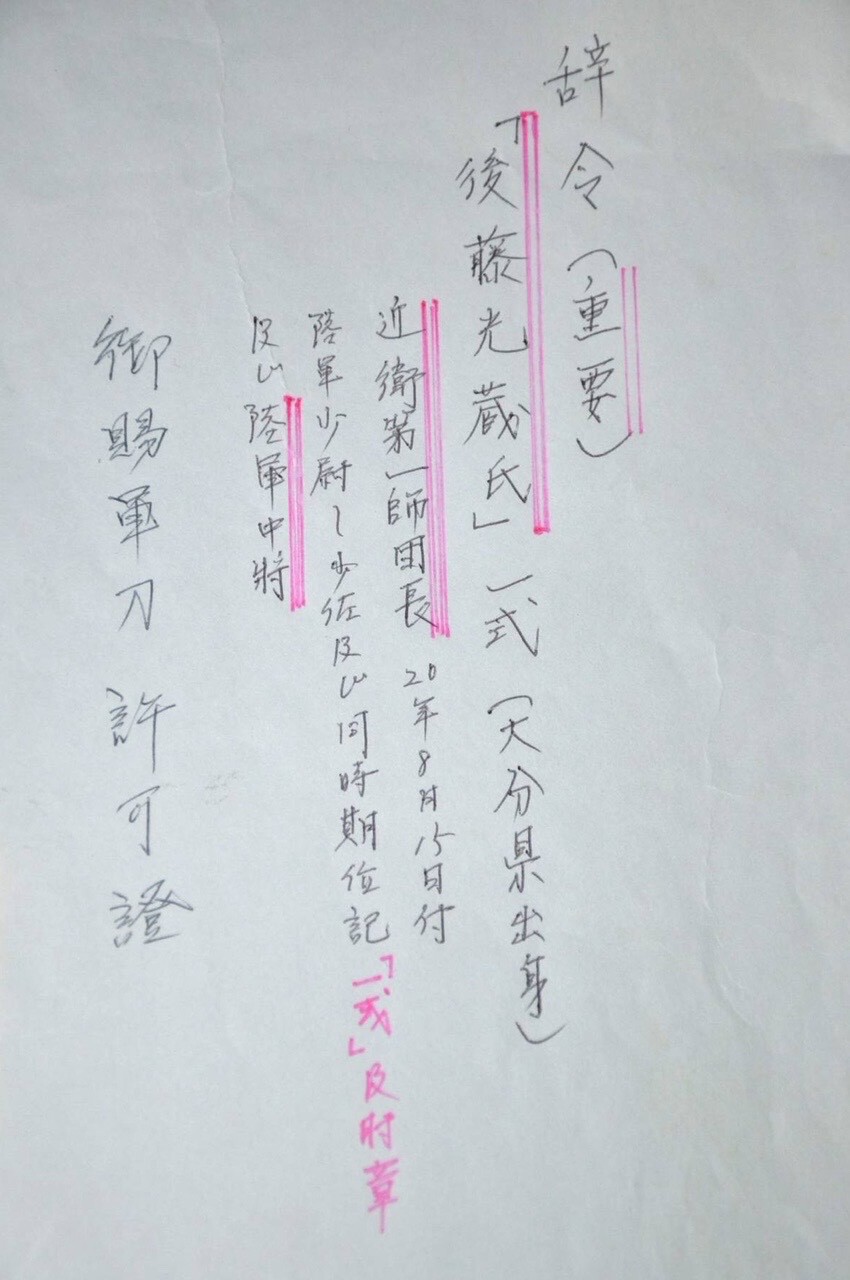 辞令(重要)
「後藤光蔵氏」一式(大分県出身)
近衛第一師団長 20年8月15日付
陸軍少尉~少佐及び同時期位記「一式」及
章
及び陸軍中将
御賜軍刀許可證